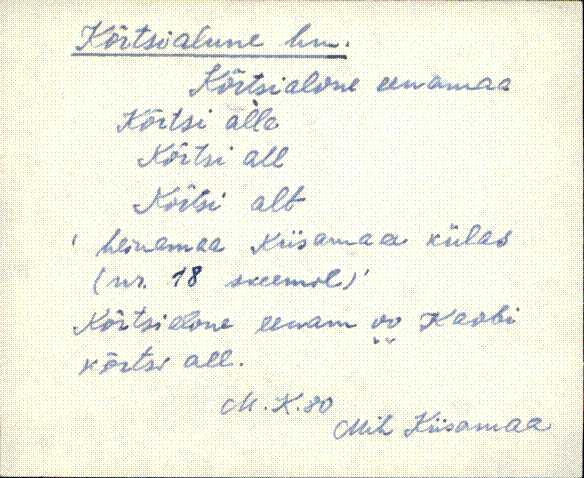 Kõrtsialune hm.
Kõrtsialone eenamaa
Kõrtsi alla
Kõrtsi all
Kõrtsi alt
' heinamaa Kiisamaa külas
(nr. 18 skeemil)'
Kõrtsialone eenam oo Kaobi
kõrtsi all.
M. K. 80
Mih Kiisamaa